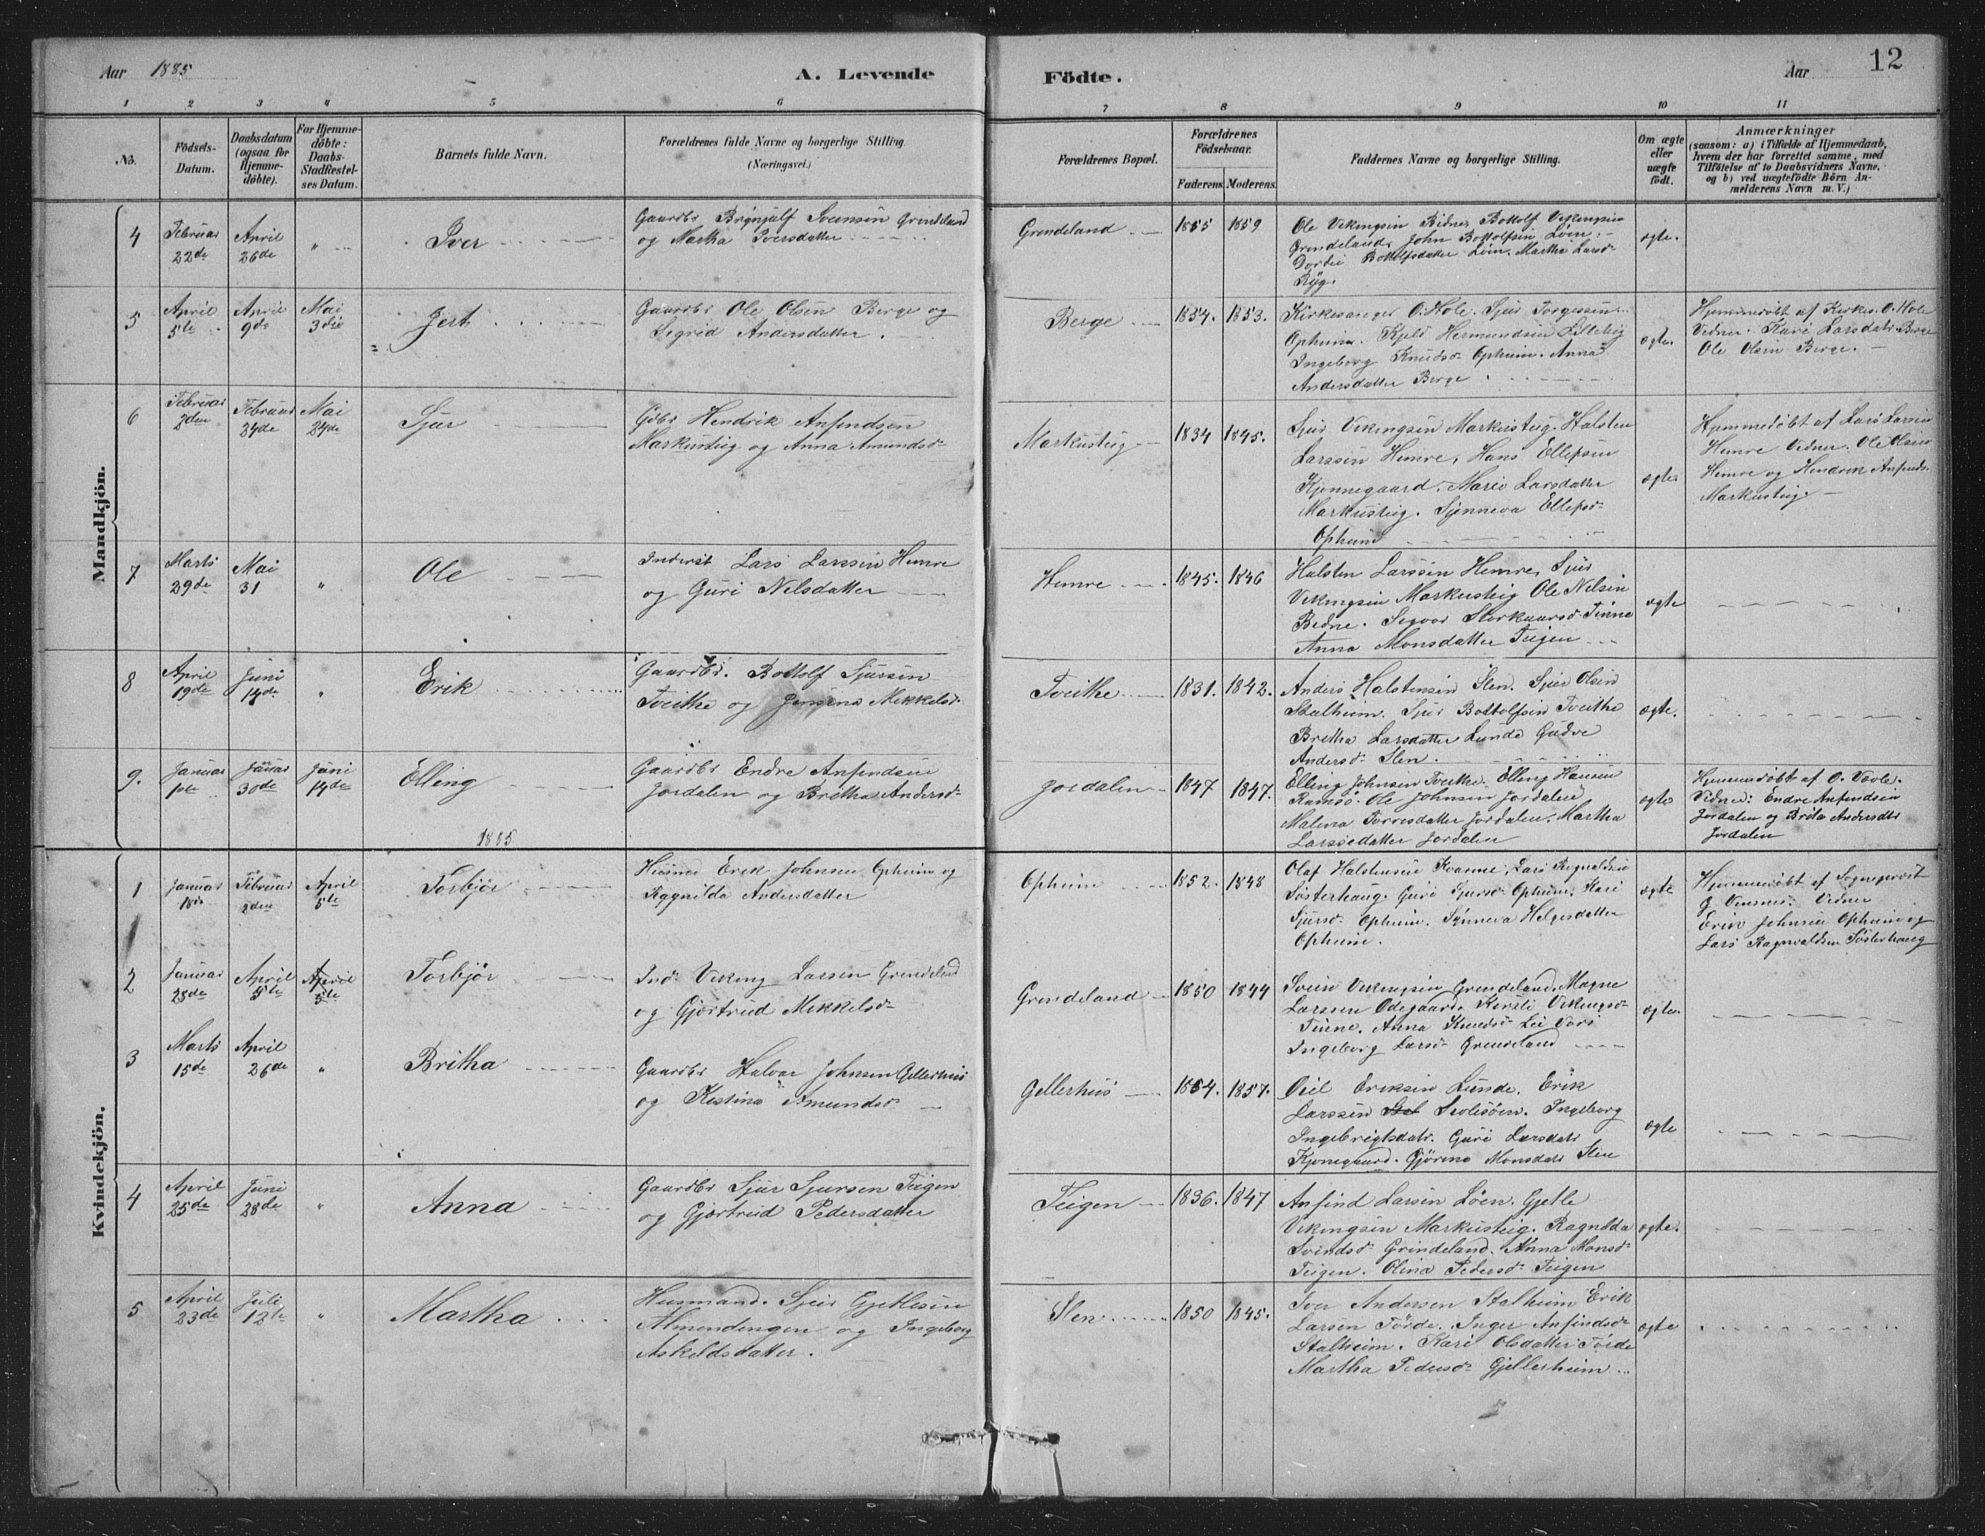 Aar 1885
A. Levende Födte.
Aar
12
1 2 3 4 5 6 7 8 9 10 11
No.
Födsels-Datum.
Daabsdatum (ogsaa for Hjemmedöbte).
For Hjemmedöbte: Daabs-Stadfæstelses Datum.
Barnets fulde Navn.
Forældrenes fulde Navne og borgerlige Stilling.
(Næringsvei.)
Forældrenes Bopæl.
Forældrenes Födselsaar.
Faderens. Moderens.
Faddernes Navne og borgerlige Stilling.
Om ægte eller uægte födt.
Anmærkninger
(saasom: a) i Tilfælde af Hjemmedaab,
hvem der har forrettet samme, med
Tilföielse af to Daabsvidners Navne,
og b) ved uægtefödte Börn Anmelderens Navn m. V.)
Mandkjön.
4 Februar 22de April 26de " Iver
Gaardbr Brynjulf Svensen Grendeland
og Martha Iversdatter
Grendeland 1855 1859
Ole Vikingsen Bidne, Bottolf Vikingsen
Grendeland, John Bottolfsen Löen.
Dordei Bottolfsdatter Löen. Martha Larsd.
Ryg.
ægte.
5 April 5te April 9de Mai 3die Gert
Gaardbr Ole Olsen Berge og
Sigrid Andersdatter.
Berge 1854. 1853.
Kirkesanger O. Hole. Sjur Torgessen
Opheim. Kjeld Hermundsen
Ingeborg Knudsd. Opheim. Anna
Andersdatter Berge
ægte.
Hjemmedöbt af Kirkes. O. Hole
Vidner. Kari Larsdatr Berge
Ole Olsen Berge.
6 Februar 2den Februar 24de Mai 24de Sjur
Gdbr Hendrik Anfindsen
Markusteig og Anna Amundsd.
Markusteig 1834 1845.
Sjur Vikingsen Markusteig. Halsten
Larssen Hemre, Hans Ellefsen
Kjönnegaard. Mari Larsdatter
Markusteig. Synneva Ellefsd.
Opheim
ægte
Hjemmedöbt af Lars Larsen
Hemre Vidner. Ole Olsen
Hemre og Hendrik Anfinds.
Markusteig.
7 Marts 29de Mai 31 " Ole
Inderst Lars Larssen Hemre
og Guri Nilsdatter
Hemre 1845. 1846
Halsten Larssen Hemre, Sjur
Vikingsen Markusteig Ole Nilsen
Bidne. Sigvor Storkaarsd. Tinne
Anna Monsdatter Teigen
ægte
8 April 19de Juni 14de " Erik
Gaardbr. Bottolf Sjursen
Tveithe og Jensina Mikkelsd.
Tveithe 1831. 1842.
Anders Halstensen Slen. Sjur Olsen
Stalheim. Sjur Bottolfsen Tveithe
Britha Larsdatter Lunde Gudve
Andersd. Slen.
ægte.
9. Januar 1ste Januar 30de Juni 14de Elling
Gaardbr Endre Anfindsen
Jordalen og Britha Andersd.
Jordalen 1847 1847.
Elling Johnsen Tveithe. Elling Hansen
Ramsö. Ole Johnsen Jordalen
Malena Torresdatter Jordalen. Martha
Larssedatter Jordalen
ægte
Hjemmedöbt af O. Vavle.
Vidner: Endre Anfindsen
Jordalen og Brita Andersdtr
Jordalen
1885
Kvindekjön.
1 Januar 18de Februar 2den April 5te Torbjör
Husmd Erik Johnsen Opheim og
Ragnilda Andersdatter
Opheim 1852. 1848
Olaf Halstensen Kvarme, Lars Ragnvaldsen
Sösterhaug. Guri Sjursd. Opheim. Kari
Sjursd. Opheim. Synneva Helgesdatter
Opheim.
ægte
Hjemmedöbt af Sogneprest
J Vinsnes. Vidner
Erik Johnsen Opheim og
Lars Ragnvaldsen Sösterhaug
2 Januar 28de April 5te April 5te Torbjör
Ind. Viking Larsen Grendeland
og Gjertrud Mikkelsd.
Grendeland 1850 1844
Svein Vikingsen Grendeland, Magne
Larssen Odegaard, Kersti Vikingsd.
Tinne. Anna Knudsd. Lei Vors
Ingeborg Larsd. Grendeland
ægte.
3 Marts 15de April 26de " Britha
Gaardbr Halvar Johnsen Gellerhus
og Kestina Amundsd.
Gellerhus 1854. 1857.
Eriksen Lunde. Erik
Larssen Sivlesöen. Ingeborg
Ingebrigtsdatr. Guri Larsdatr
Kjönegaard. Gjörina Monsdatr Slen
ægte
4 April 25de Juni 28de " Anna
Gaardbr Sjur Sjursen Teigen
og Gjertrud Pedersdatter
Teigen 1836. 1847
Anfind Larsen Löen. Gjetle
Vikingsen Markusteig. Ragnilda
Svendsd. Grindeland. Anna Monsd.
Teigen. Olina Pedersd. Teigen
ægte.
5 April 23de Juli 12te " Martha
Husmand. Sjur Gjetlesen
Almendingen og Ingeborg
Askeldsdatter.
Slen 1850 1845.
Iver Andersen Stalheim Erik
Larsen Törde. Inger Anfindsd.
Stalheim. Kari Olsdatter Törde
Martha Pedersd. Gjellerheim
ægte